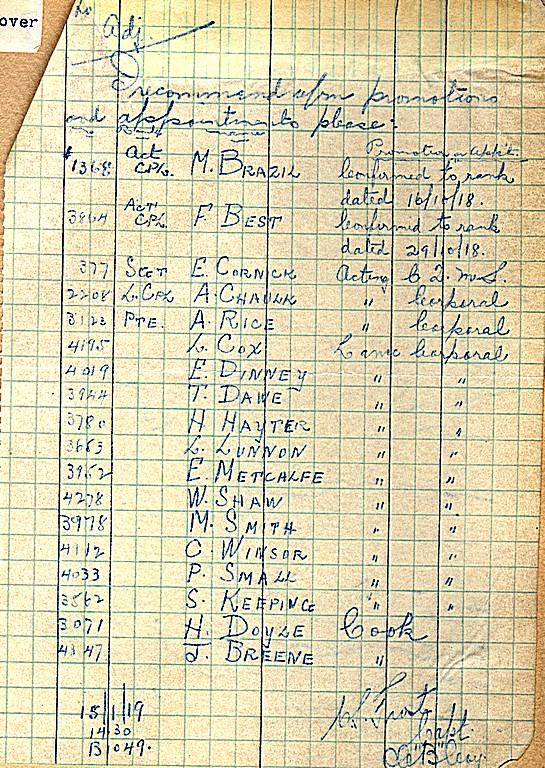 over
Adj.
I recommend afm promotions
and appointments please:-
Rank
Promotion or Appt.
1368 Act CPL. M. BRAZIL Confirmed to rank
dated 16/10/18.
3864 ACT CPL. F. BEST Confirmed to rank
dated 29/10/18.
377 SGT E. CORNICK Acting C.Q.M.S.
2208 L. CPL A. CHAULK " Corporal
3123 PTE. A. RICE " Corporal
4195 L. COX Lance Corporal
4019 E. DINNEY " "
3944 T. DAWE " "
3780 H HAYTER " "
3663 L. LUNNON " "
3952 E. METCALFE " "
4278 W. SHAW " "
3978 M. SMITH " "
4112 C. WINSOR " "
4033 P. SMALL " "
3562 S. KEEPING " "
3071 H. DOYLE Cook
4347 J. BREENE "
15/1/19
14 30
B 049.
Capt